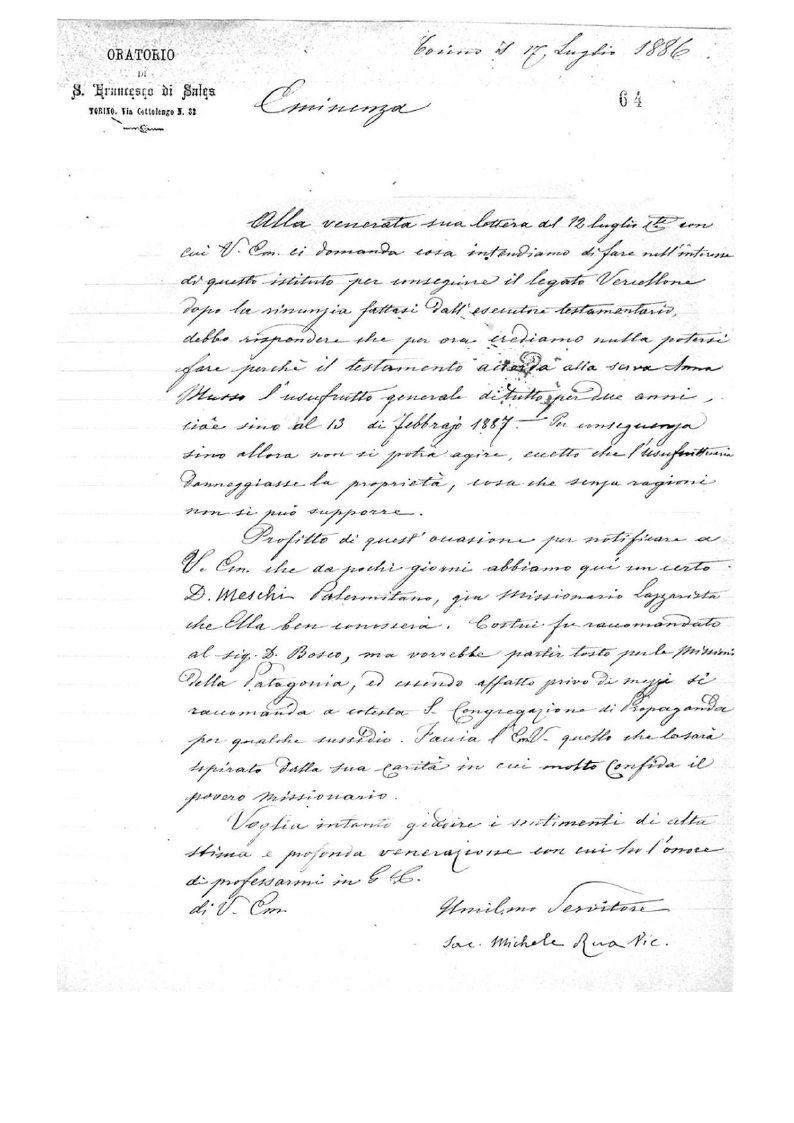 ORATORIO
DI
S. Francesco di Sales
TORINO. Via Cottolengo N. 32
Torino il 17 Luglio 1886
64
Eminenza
Alla venerata sua lettera del 12 luglio con
cui V. Em. ci domanda cosa intendiamo di fare nell'interesse
di questo istituto per conseguire il legato Vercellone
dopo la rinunzia fattasi dall'esecutore testamentario,
debbo rispondere che per ora crediamo nulla potersi
fare perchè il testamento accorda alla serva Anna
Musso l'usufrutto generale di tutto per due anni,
cioè sino al 13 di febbrajo 1887. — In conseguenza
sino allora non si potrà agire, eccetto che l'usufruttuaria
danneggiasse la proprietà, cosa che senza ragioni
non si può supporre.
Profitto di quest'occasione per notificare a
V. Em. che da pochi giorni abbiamo qui un certo
D. Meschi Palermitano, già Missionario Lazzarista
che Ella ben conoscerà. Costui fu raccomandato
al sig. D. Bosco, ma vorrebbe partir tosto per le Missioni
della Patagonia, ed essendo affatto privo di mezzi si
raccomanda a cotesta S. Congregazione di Propaganda
per qualche sussidio. Faccia l'Em. V. quello che le sarà
ispirato dalla sua carità in cui molto confida il
povero missionario.
Voglia intanto gradire i sentimenti di alta
stima e profonda venerazione con cui ho l'onore
di professarmi in G. C.
di V. Em.
Umilmo Servitore
Sac. Michele Rua Vic.